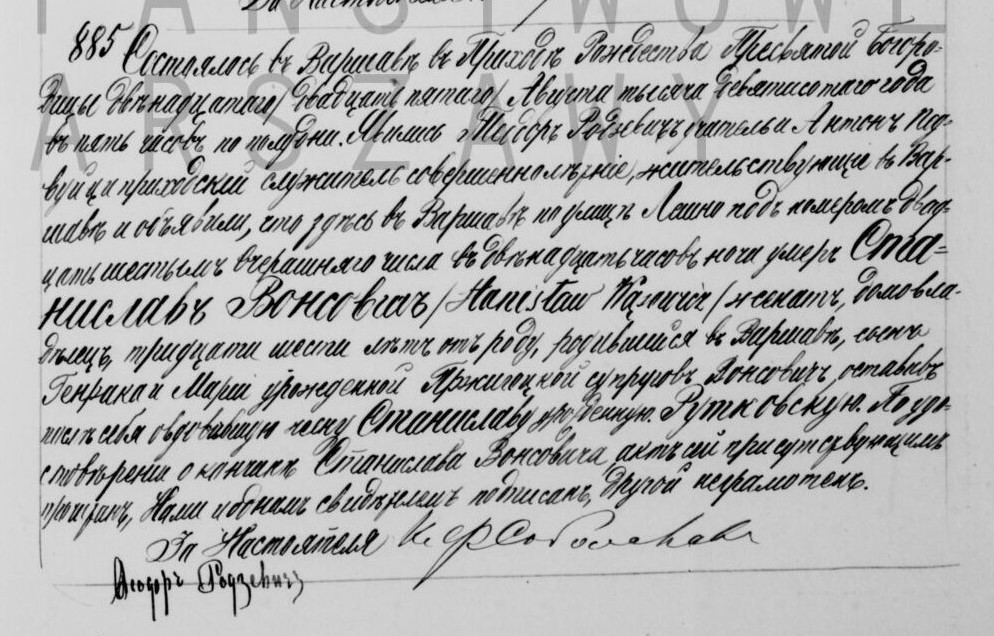 За Настоятеля
885 Состоялось въ Варшавѣ въ Приходѣ Рождества Пресвятой Богоро-
дицы двѣнадцатаго/двадцать пятаго/Августа тысяча девятисотаго года
въ пять часовъ по полудни. Явились Ѳеодоръ Родзевичъ учитель и Антонъ
приходскій служитель совершеннолѣтніе, жительствующіе въ Вар-
шавѣ и объявили, что здѣсь въ Варшавѣ по улицѣ Лешно подъ номеромъ двад-
цать шестымъ вчерашняго числа въ двѣнадцать часовъ ночи умеръ Ста-
ниславъ Вонсовичъ/Stanisław Wąsowicz/женатъ, домовла-
дѣлецъ, тридцати шести лѣтъ отъ роду, родившійся въ Варшавѣ, сынъ
Генрика и Маріи урожденной супруговъ Вонсовичъ, оставивъ
послѣ себя овдовѣвшую жену Станиславу урожденную Рутковскую. По удо-
стовѣреніи о кончинѣ Станислава Вонсовича, актъ сей присутствующимъ
прочитанъ, Нами и однимъ свидѣтелемъ подписанъ, другой неграмотенъ.
За Настоятеля
Ѳеодоръ Родзевичъ
PAŃSTWOWE
WARSZAWY